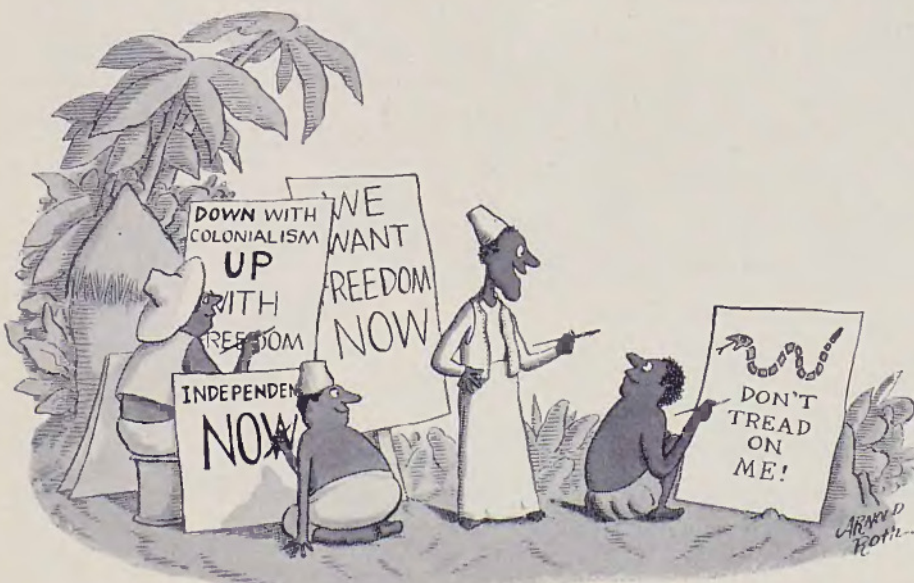 DOWN WITH
COLONIALISM
UP
WITH
FREEDOM
WE
WANT
FREEDOM
NOW
INDEPENDEN
NOW
DON'T
TREAD
ON
ME!
ARNOLD
ROTH